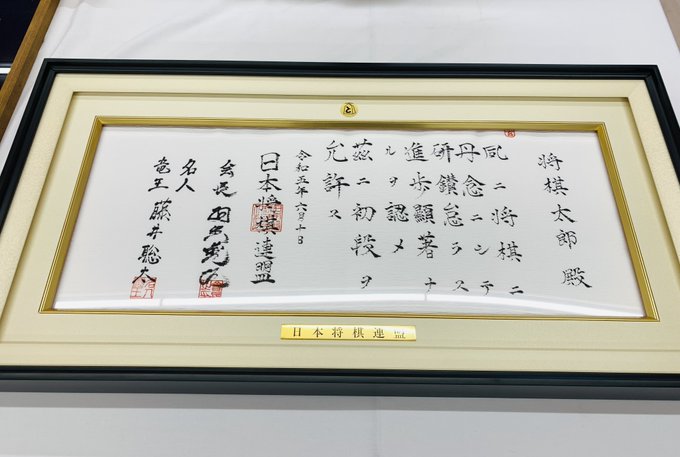 将棋太郎殿
夙ニ将棋ニ
丹念ニシテ
研鑽怠ラス
進歩顕著ナ
ルヲ認メ
茲ニ初段ヲ
允許ス
令和五年六月十日
日本将棋連盟
会長 羽生善治
名人
竜王 藤井聡太
日本将棋連盟